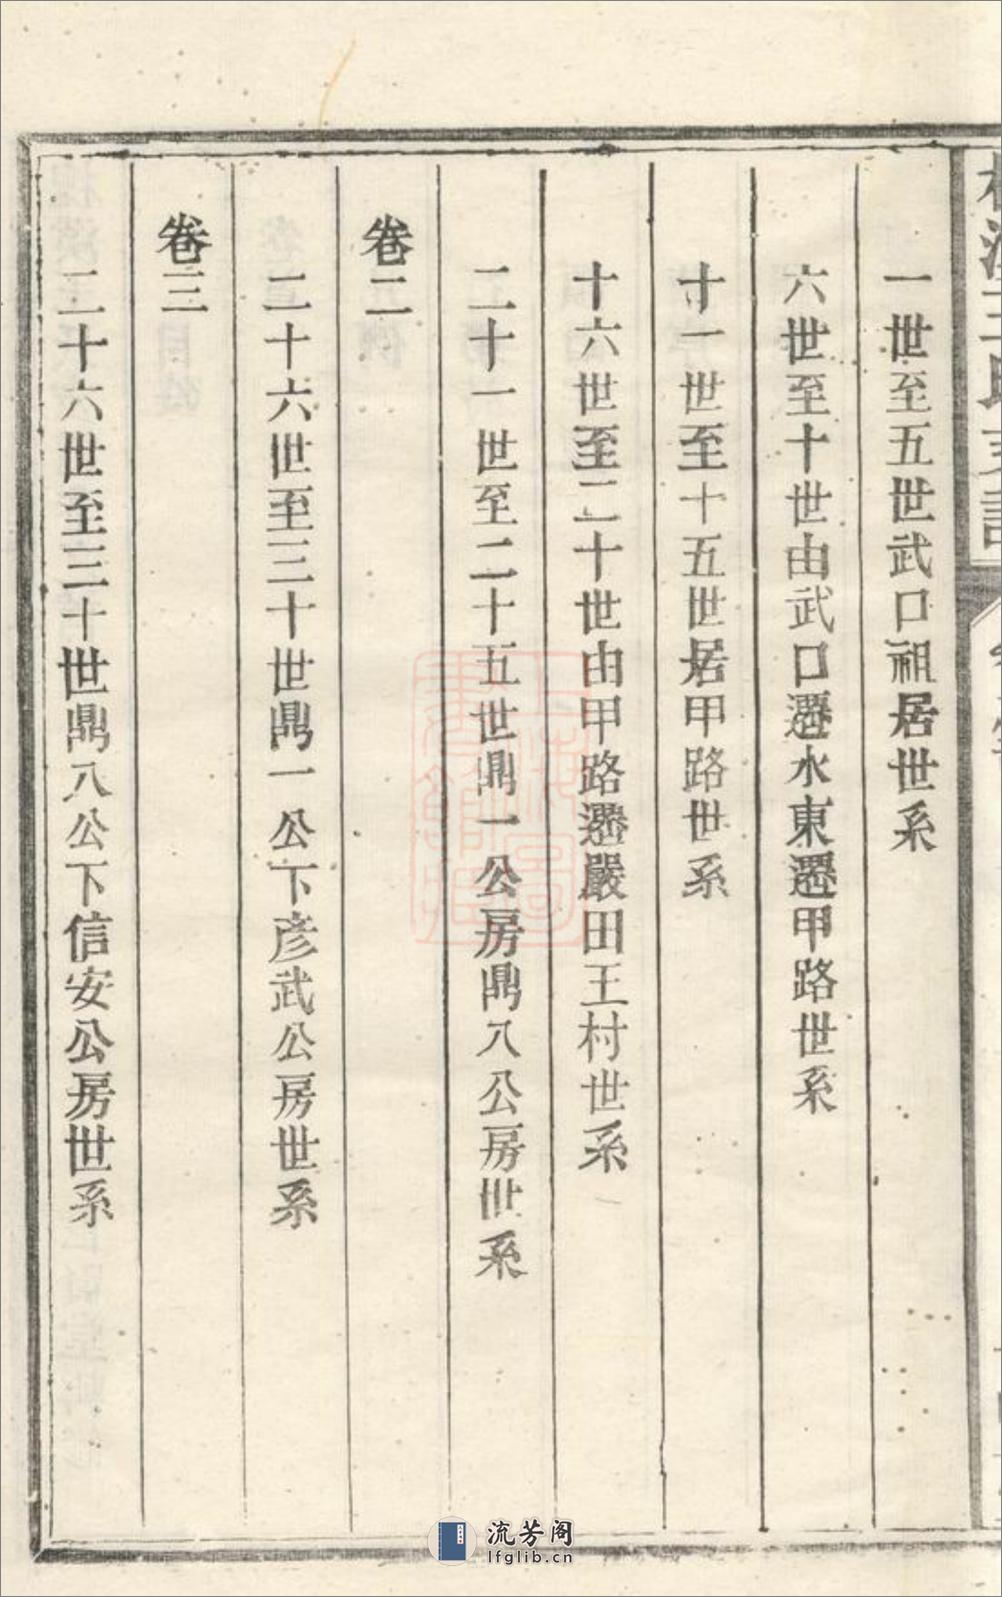 一世至五世武口祖居世系
六世至十世由武口遷水東遷甲路世系
十一世至十五世居甲路世系
十六世至二十世由甲路遷嚴田王村世系
二十一世至二十五世鼎一公房鼎八公房世系
卷二
二十六世至三十世鼎一公下彦武公房世系
卷三
二十六世至三十世鼎八公下信安公房世系
流芳阁
lfglib.cn